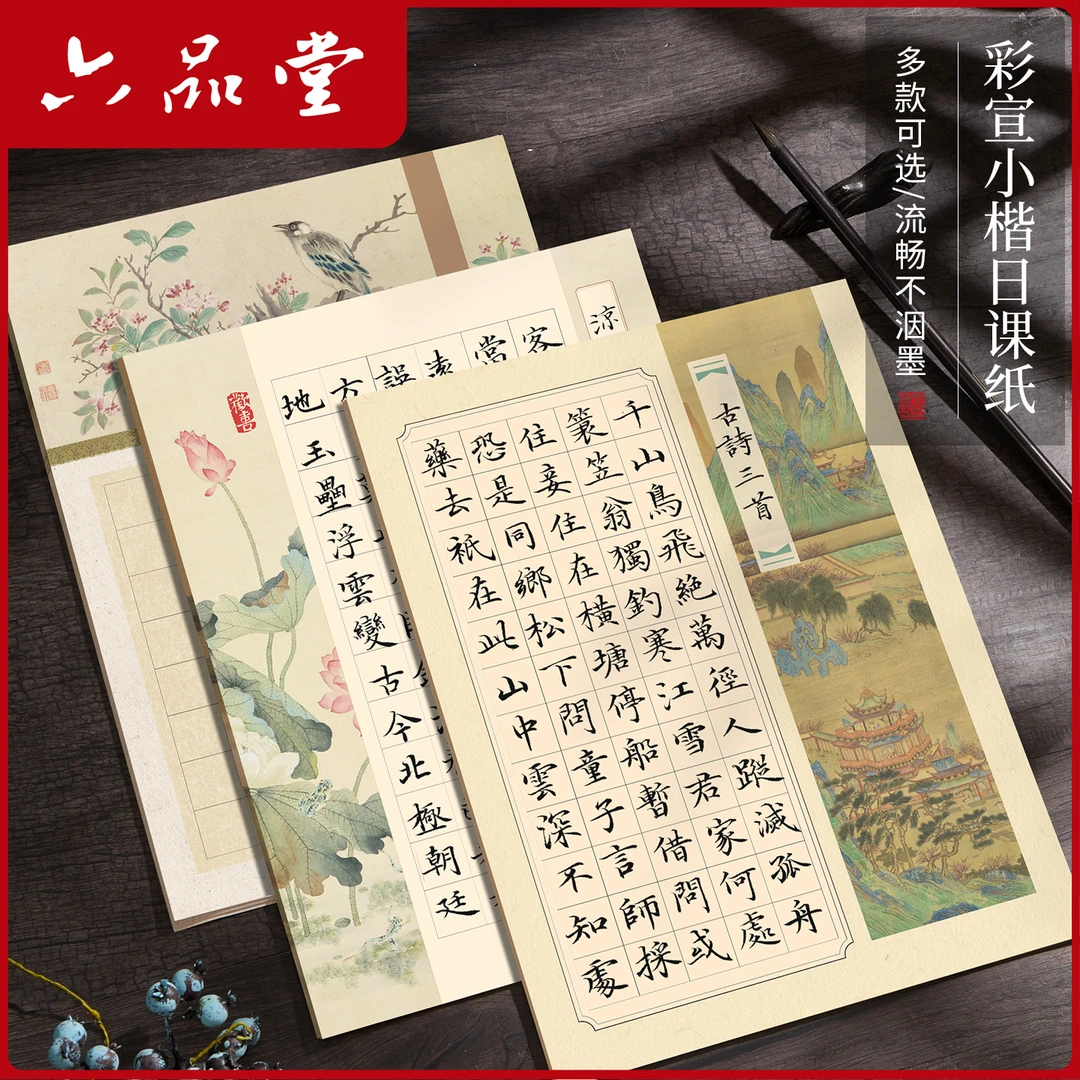 六品堂
彩宣小楷日课纸
多款可选/流畅不洇墨
古詩三首
千山鳥飛絕萬徑人蹤滅孤舟
簑笠翁獨釣寒江雪君家何處
住妾住在橫塘停船暫借問或
恐是同鄉松下問童子言師採
藥去衹在此山中雲深不知處
涼
客
當
遠
方
地玉壘浮雲變古今北極朝廷